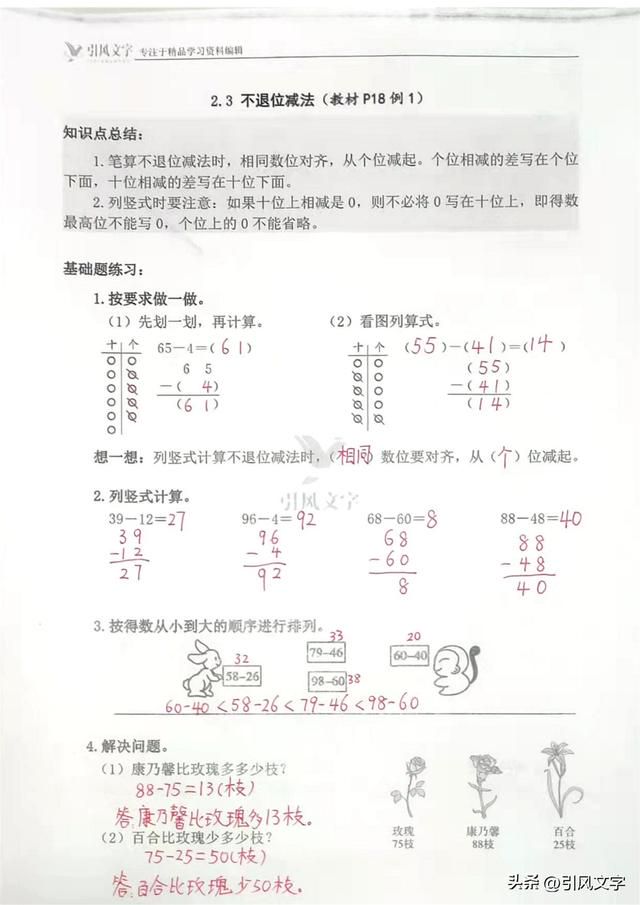 引风文字 专注于精品学习资料编辑
2.3 不退位减法（教材P18例1）
知识点总结：
1.笔算不退位减法时，相同数位对齐，从个位减起。个位相减的差写在个位
下面，十位相减的差写在十位下面。
2.列竖式时要注意：如果十位上相减是0，则不必将0写在十位上，即得数
最高位不能写0，个位上的0不能省略。
基础题练习：
1.按要求做一做。
（1）先划一划，再计算。 （2）看图列算式。
十 个 65－4＝(61) 十 个 (55)－(41)＝(14)
6 5 (55)
－( 4) －(41)
(61) (14)
想一想：列竖式计算不退位减法时，(相同)数位要对齐，从(个)位减起。
引风文字
2.列竖式计算。
39－12＝27 96－4＝92 68－60＝8 88－48＝40
39 96 68 88
－12 － 4 －60 －48
27 92 8 40
3.按得数从小到大的顺序进行排列。
32 33 20
58－26 79－46 60－40
98－60 38
60－40＜58－26＜79－46＜98－60
4.解决问题。
（1）康乃馨比玫瑰多多少枝？
88－75＝13(枝)
答：康乃馨比玫瑰多13枝。
（2）百合比玫瑰少多少枝？
75－25＝50(枝)
答：百合比玫瑰少50枝。
玫瑰 康乃馨 百合
75枝 88枝 25枝
头条 @引风文字